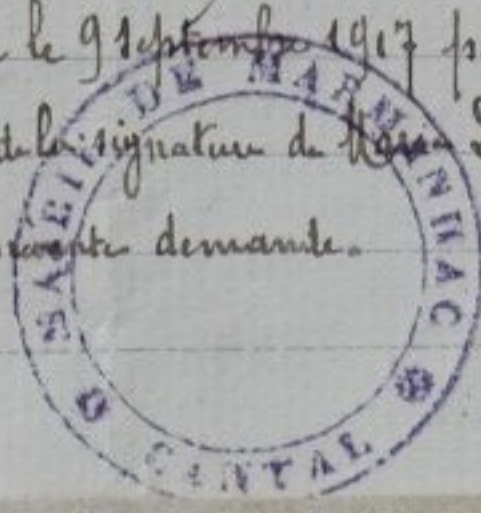 le 9 septembre 1917
de la signature de
demande.
MAIRIE DE MARMANHAC
CANTAL